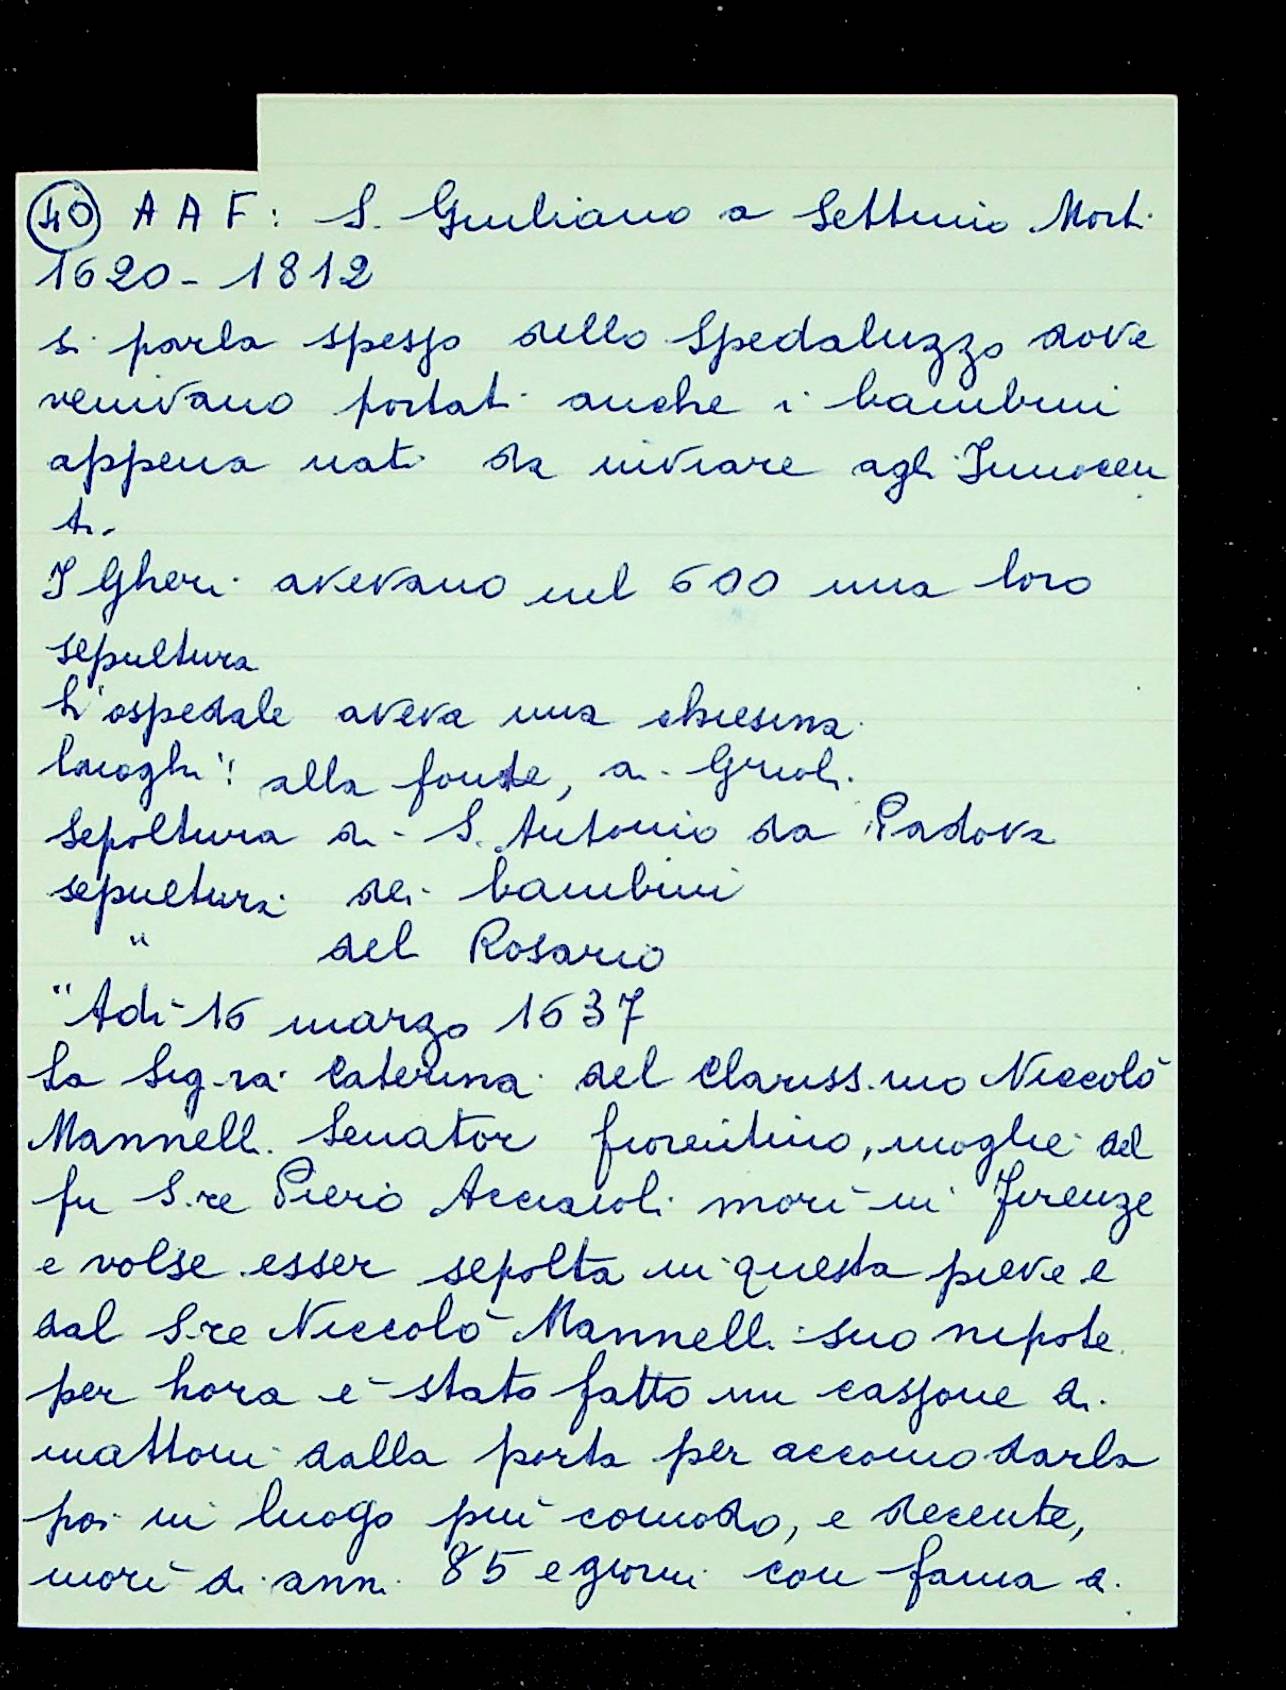 40 AAF: S. Giuliano a Settimo Morti
1620-1812
si parla spesso dello Spedaluzzo dove
venivano portati anche i bambini
appena nati da inviare agli Innocen
ti.
I Gheri avevano nel 600 una loro
sepultura
L'ospedale aveva una chiesina
luoghi: alla fonte, ai Grioli.
Sepoltura di S. Antonio da Padova
sepultura dei bambini
" del Rosario
"Adì 16 marzo 1637
La Sig.ra Caterina del Clariss.mo Niccolò
Mannelli Senator fiorentino, moglie del
fu S.re Piero Acciaioli morì in Firenze
e volse esser sepolta in questa pieve e
dal S.re Niccolò Mannelli suo nipote
per hora è stato fatto un cassone di
mattoni dalla porta per accomodarla
poi in luogo più comodo, e decente,
morì di anni 85 e giorni con fama di